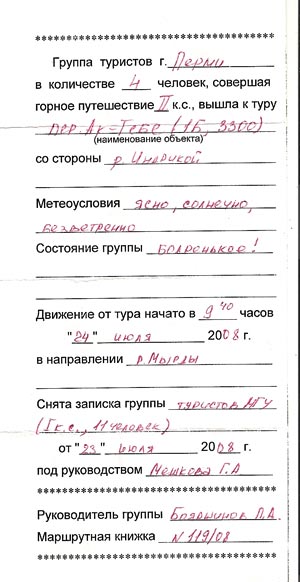 ************************************
Группа туристов г. Перми
в количестве 4 человек, совершая
горное путешествие II к.с., вышла к туру
пер. Ак-Тебе (1Б, 3300)
(наименование объекта)
со стороны р. Индрикой
Метеоусловия ясно, солнечно,
безветренно
Состояние группы Бодренькое!
Движение от тура начато в 9 40 часов
"24" июля 2008 г.
в направлении р. Мырды
Снята записка группы туристов МГУ
(I к.с., 11 человек)
от "23" июля 2008 г.
под руководством Мешкова Г.А
************************************
Руководитель группы Бояршинов П.А.
Маршрутная книжка N 119/08
************************************